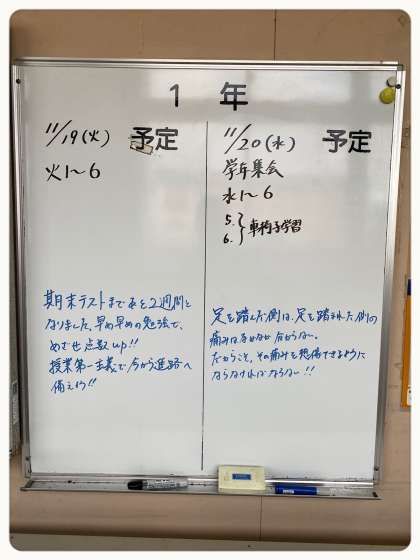 1 年
11/19(火) 予定
火1〜6
期末テストまであと2週間と
なりました。早め早めの勉強で、
めざせ点数up!!
授業第一主義で今から進路へ
備えよう!!
11/20(水) 予定
学年集会
水1〜6
5.
6. } 車椅子学習
足を踏んだ側は、足を踏まれた側の
痛みはなかなか分からない。
だからこそ、その痛みを想像できるように
ならなければならない!!